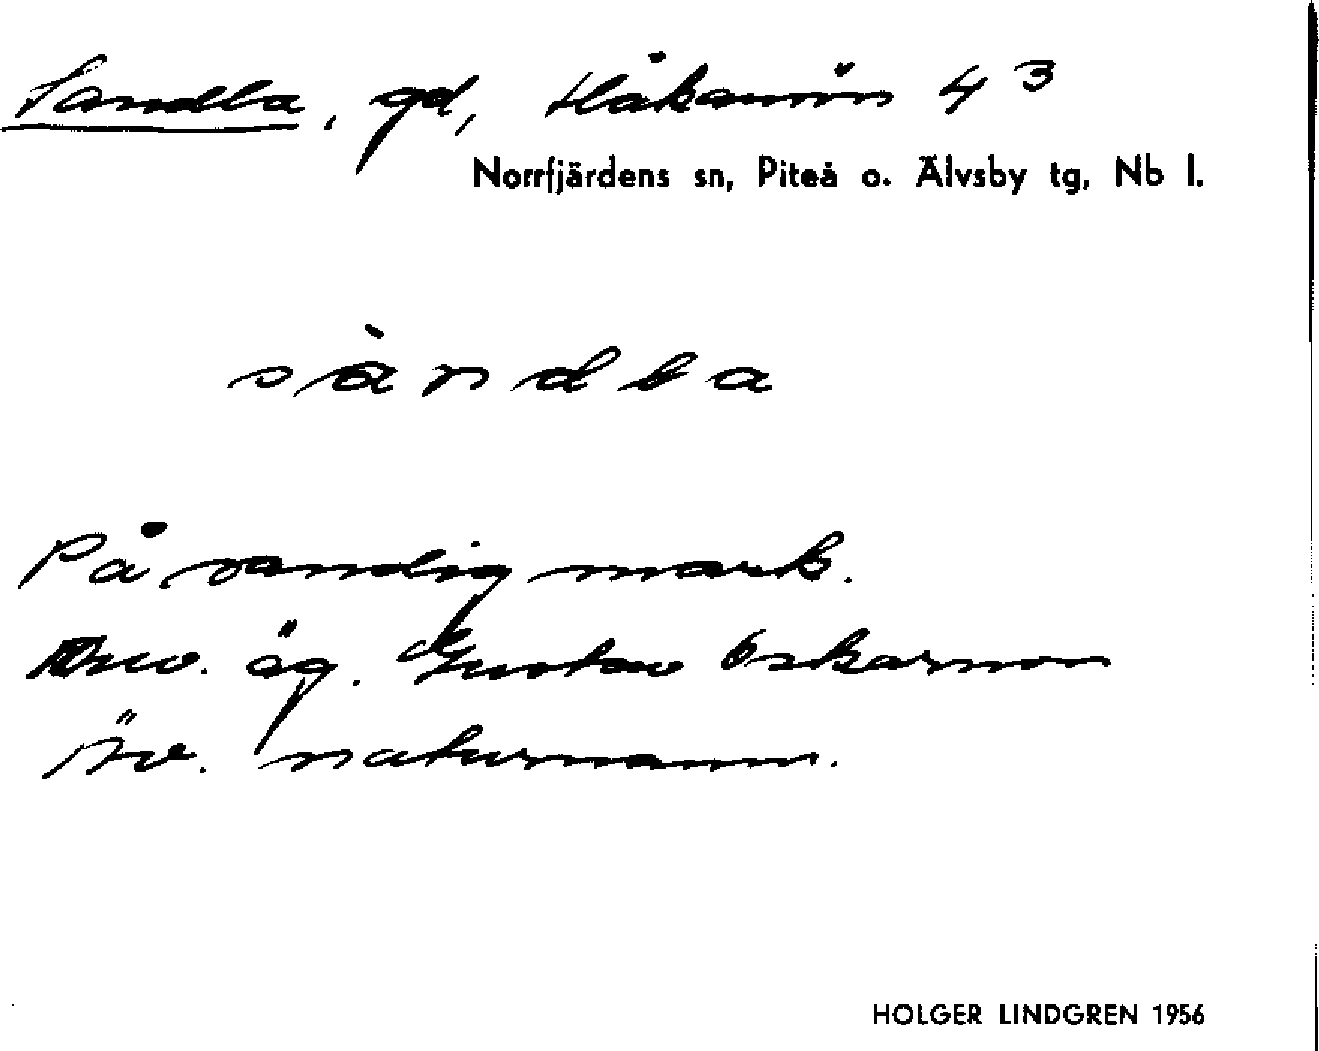 Sandla, gd, Håkansön 4 3
Norrfjärdens sn, Piteå o. Älvsby tg, Nb l.
sàndla
På sandig mark.
Nuv. äg. Gustav Oskarsson
Öv. naturnamn.
HOLGER LINDGREN 1956